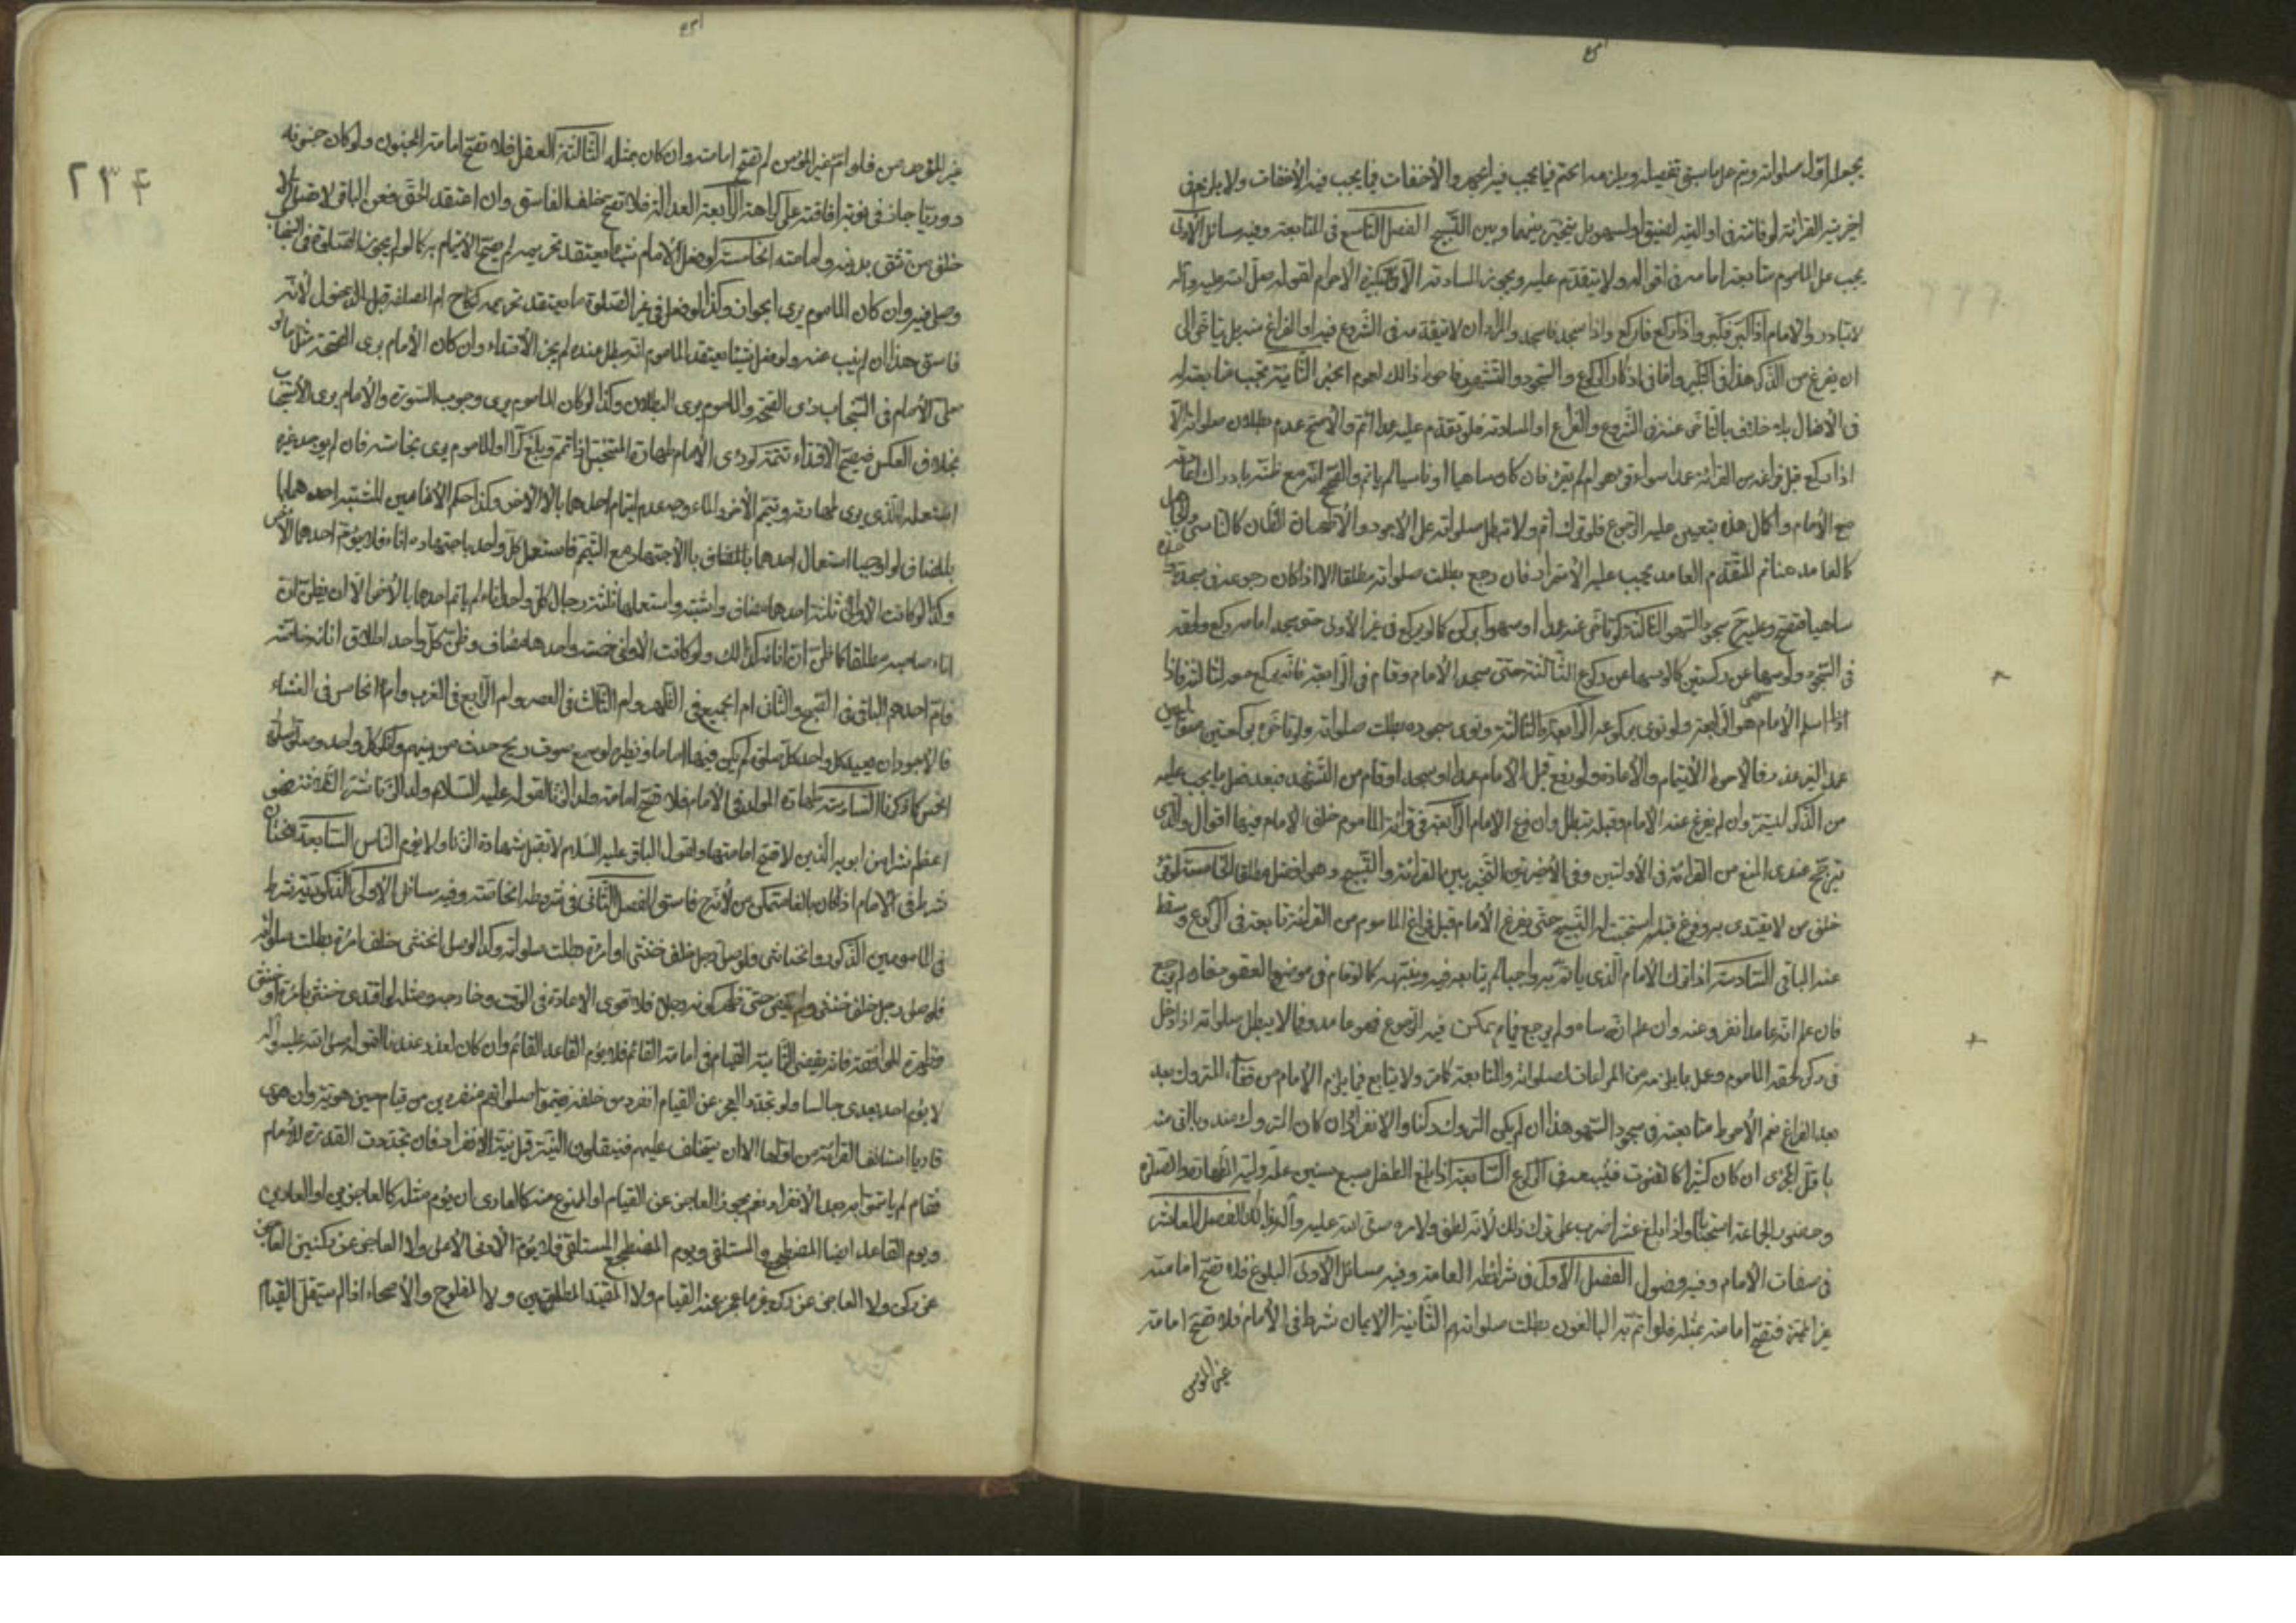 يجعل اول صلواته ويتم على ما سبق تفصيله ويلزمه الحتم فيما يجب فيه الجهر والأخفات فيما يجب فيه الأخفات ولا يلزمه في
اخيرتيه القرائة لو فاتته في اوالتيه لضيق او لسهو بل يتخير بينهما وبين التسبيح الفصل التاسع في المتابعة وفيه مسائل الأولى
يجب على الماموم متابعة امامه في اقواله ولا يتقدم عليه ويجوز المساوقة الا في تكبيرة الأحرام لقوله صلى الله عليه وآله
لا تبادروا الامام اذا كبر فكبروا واذا ركع فاركع واذا سجد فاسجد والمراد ان لا يتقدمه في الشروع فيه او الفراغ منه بل يتاخر الى
ان يفرغ من الذكر هذا في التكبير واما في اذكار الركوع والسجود والتشهد فاحوط ذالك لعموم الخبر الثانية تجب متابعته له
في الأفعال بلا خلاف بالتاخر عنه في الشروع والفراغ او المساوقة فلو تقدم عليه عمدا اثم والأصح عدم بطلان صلواته الا
اذا ركع قبل فراغه من القرائة عمدا سواء قرء هو ام لم يقرء فان كان ساهيا او ناسيا لم ياثم والصحيح انه مع ظنه بادراك
مع الأمام واكمال هذه يتعين عليه الرجوع فلو ترك اثم ولا تبطل صلواته على الأجود والأظهر ان الظان كالناسي والجاهل
كالعامد هنا ثم المتقدم العامد يجب عليه الأستمرار فان رجع بطلت صلواته مطلقا الا اذا كان رجوعه في سجدة واحدة
ساهيا فتصح وعليه سجود السهو الثالثة لو تاخر عنه عمدا او سهوا بركن كالو يركع في غير الأولى حتى سجد امامه ركع ولحقه
في السجود ولو سها عن ركنين كالو سها عن ركوع الثالثة حتى سجد الأمام وقام في الرابعة فانه يركع معه لثالثة فاذا
اذا سلم الأمام هو الرابعة ولو نوى بركوعه الرابعة والثالثة ونوى سجوده بطلت صلواته ولو تاخر بركعتين
عمدا لغير عذر فالاحوط الأيتمام والأعادة ولو رفع قبل الأمام عمدا او سجد او قام من التشهد فبعد فعل ما يجب عليه
من الذكر ليستمر وان لم يفرغ عنه الأمام وقبله تبطل وان رفع الأمام الرابعة في قرائة الماموم خلف الامام فيها اقوال والذي
يترجح عندي المنع من القرائة في الأولتين وفي الأخيرتين التخيير بين القرائة والتسبيح وهو افضل مطلقا الخامسة لو قرء
خلف من لا يقتدى به وفرغ قبله استحب له التسبيح حتى يفرغ الأمام قبل فراغ الماموم من القرائة تابعه في الركوع وسقط
عنه الباقي السادسة اذا ترك الأمام الذي ياتم به واجبا لم يتابعه فيه وينبهه كالو قام في موضع القعود فان لم يرجع
فان علم انه عامد انفرد عنه وان علم انه ساه ولم يرجع فيما يمكن فيه الرجوع فهو عامد وفيما لا يبطل صلواته اذا دخل
في ركن لحقه الماموم وعمل بما يلزمه من المراعات لصلواته والمتابعة كامر ولا يتابع فيما يلزم الإمام من قضاء المتروك بعد
بعد الفراغ نعم الأحوط متابعته في سجود السهو هذا ان لم يكن المتروك ركنا والا نفرد ان كان المتروك مندوبا اتى منه
باقل المجزي ان كان كثيرا كالقنوت فليتبعه في الركوع السابعة اذا بلغ الطفل سبع سنين علمه وليه الطهارة والصلوة
وحضور الجماعة استحبابا واذا بلغ عشرا ضرب على ترك ذلك لأنه لطف ولأمره صلى الله عليه وآله بذلك الفصل العاشر
في صفات الأمام وفيه فصول الفصل الأول في شرائطه العامة وفيه مسائل الأولى البلوغ فلا تصح امامة
غير المميز وتصح امامته بمثله فلو ائتم به البالغون بطلت صلواتهم الثانية الايمان شرط في الأمام فلا تصح امامة
غير المؤمن
٢٣٤
غير المؤمن فلو ام غير المؤمن لم تصح امامته وان كان بمثله الثالثة العقل فلا تصح امامة المجنون ولو كان جنونه
دوريا جاز في نوبة افاقته على كراهة الرابعة العدالة فلا تصح خلف الفاسق وان اعتقد الحق فعن الباقر لا تصل الا
خلف من تثق بدينه وامانته الخامسة لو فعل الأمام شيئا يعتقد تحريمه لم يصح الايتمام به كالو لم يجوز الصلوة في السنجاب
وصلى فيه وان كان الماموم يرى الجواز وكذا لو فعل في غير الصلوة ما يعتقد تحريمه كنكاح ام المطلقة قبل الدخول لأنه
فاسق هذا ان لم يتب عنه ولو فعل شيئا يعتقد الماموم انه مبطل عنده لم يجز الأقتداء وان كان الأمام يرى الصحة مثل ما لو
صلى الأمام في السنجاب وراى الصحة والماموم يرى البطلان وكذا لو كان الماموم يرى وجوب السورة والأمام يرى الأستحباب
بخلاف العكس فيصح الأقتداء تتمة لو رءى الأمام طهارة المتنجس اذا تمم وبلغ كرا والماموم يرى نجاسته فان لم يوجد غيره
استعمله الذي يرى طهارته وتيمم الأخر والماء وجه عدم ايتمام احدهما بالاخر وكذا حكم الأنائين المشتبه احدهما
بالمضاف لو اوجبنا استعمال احدهما بالاجتهاد مع التيمم فاستعمل كل واحد باجتهاده اناء فلا يؤم احدهما الأخر
وكذا لو كانت الأواني ثلثة احدها مضاف واشتبه واستعملها ثلثة رجال كل واحد اناء لم ياتم احدها بالأخر الا ان يظن ان
اناء صاحبه مطلقا كا ظن ان انائه كذالك ولو كانت الاواني خمسة واحدها مضاف وظن كل واحد اطلاق انائه خاصة
فام احدهم الباقي في الصبح والثاني ام الجميع في الظهر وام الثالث في العصر وام الرابع في المغرب وام الخامس في العشاء
فالاجود ان يعيد كل واحد كل صلوة لم يكن فيها اماما ونظيره لو سمع صوت ريح حدث من بينهم وانكر كل واحد وصلوا صلوة
الخمس كا ذكرنا السادسة طهارة المولد في الامام فلا تصح امامة ولد الزنا لقوله عليه السلام ولد الزنا شر الثلاثة فهو
اعظم شرا من ابويه الذين لا تصح امامتهما ولقول الباقر عليه السلام لا تقبل شهادة الزنا ولا يؤم الناس السابعة الختان
شرط في الامام اذا كان بالغا متمكنا من لأنه فاسق الفصل الثاني في شروطه الخاصة وفيه مسائل الأولى الذكورية شرط
في المامومين الذكور والخناثى فلو صلى رجل خلف خنثى او امرءة بطلت صلواته وكذا لو صلى الخنثى خلف امرءة بطلت صلواته
فلو صلى رجل خلف خنثى ولم يتبين حتى ظهر كونه رجلا فلا قوى الاعادة في الوقت وخارجه ومثله لو اقتدى خنثى بامرءة او خنثى
وظهرة الموافقة فانه يقضي الثانية القيام في امامة القائم فلا يؤم القاعد القائم وان كان لعذر عندنا لقوله صلى الله عليه وآله
لا يؤم احد بعدي جالسا ولو تجدد العجز عن القيام انفرد من خلفه فيتموا صلواتهم منفردين من قيام حين هويه وان هوى
قارءيا استانف القرائة من اولها الا ان يتخلف عليهم فينقلون النية قبل نية الانفراد فان تجددت القدرة للأمام
فقام لم ياتموا به بعد الأنفراد نعم يجوز العاجز عن القيام او الممنوع منه كالعاري ان يؤم مثله كالعاجزين او العارين
ويؤم القاعد ايضا المضطجع والمستلقى ويؤم المضطجع المستلقى فلا يؤم الأدنى الأعلى ولا العاجز عن ركنين العاجز
عن ركن ولا العاجز عن ركن غير ما عجز عنه القيام ولا المقيد المطلقين ولا المفلوج والأصحاء اذا لم يستقل القيام